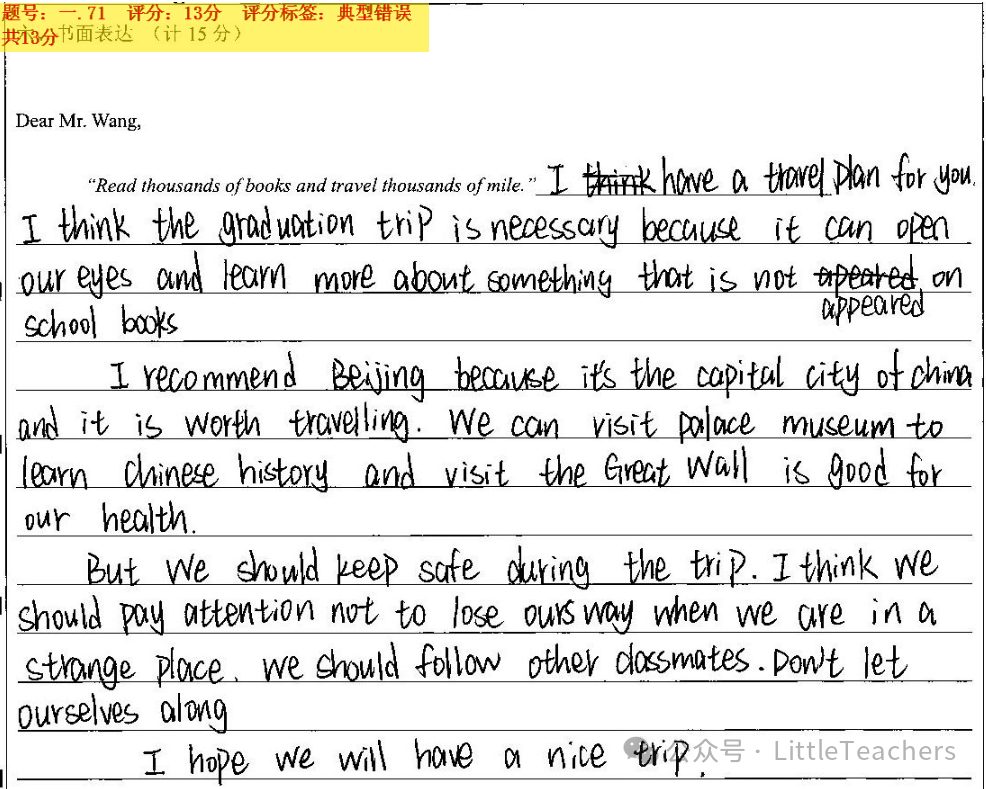 题号：一.71 评分：13分 评分标签：典型错误
共13分 书面表达 （计 15 分）
Dear Mr. Wang,
“Read thousands of books and travel thousands of mile.” I think have a travel plan for you.
I think the graduation trip is necessary because it can open
our eyes and learn more about something that is not apeared on
appeared
school books
I recommend Beijing because it's the capital city of china
and it is worth travelling. We can visit palace museum to
learn chinese history and visit the Great Wall is good for
our health.
But we should keep safe during the trip. I think we
should pay attention not to lose ours way when we are in a
strange place. we should follow other classmates. Don't let
ourselves along
I hope we will have a nice trip.
公众号 · LittleTeachers